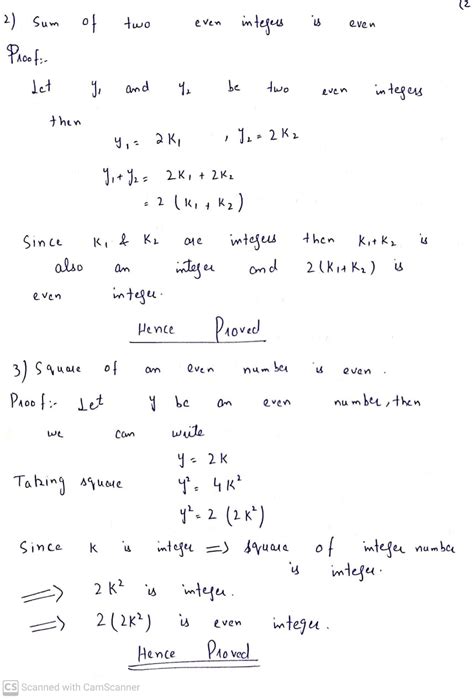 (2
2) Sum of two even integers is even
Proof:-
Let y₁ and y₂ be two even integers
then
y₁ = 2K₁ , y₂ = 2K₂
y₁ + y₂ = 2K₁ + 2K₂
= 2 (K₁ + K₂)
Since K₁ & K₂ are integers then K₁+K₂ is
also an integer and 2(K₁+K₂) is
even integer.
Hence Proved
3) Square of an even number is even.
Proof:- Let y be an even number, then
we can write
y = 2K
Taking square y² = 4K²
y² = 2 (2K²)
Since K is integer => square of integer number
is integer.
=> 2K² is integer.
=> 2(2K²) is even integer.
Hence Proved
CS Scanned with CamScanner